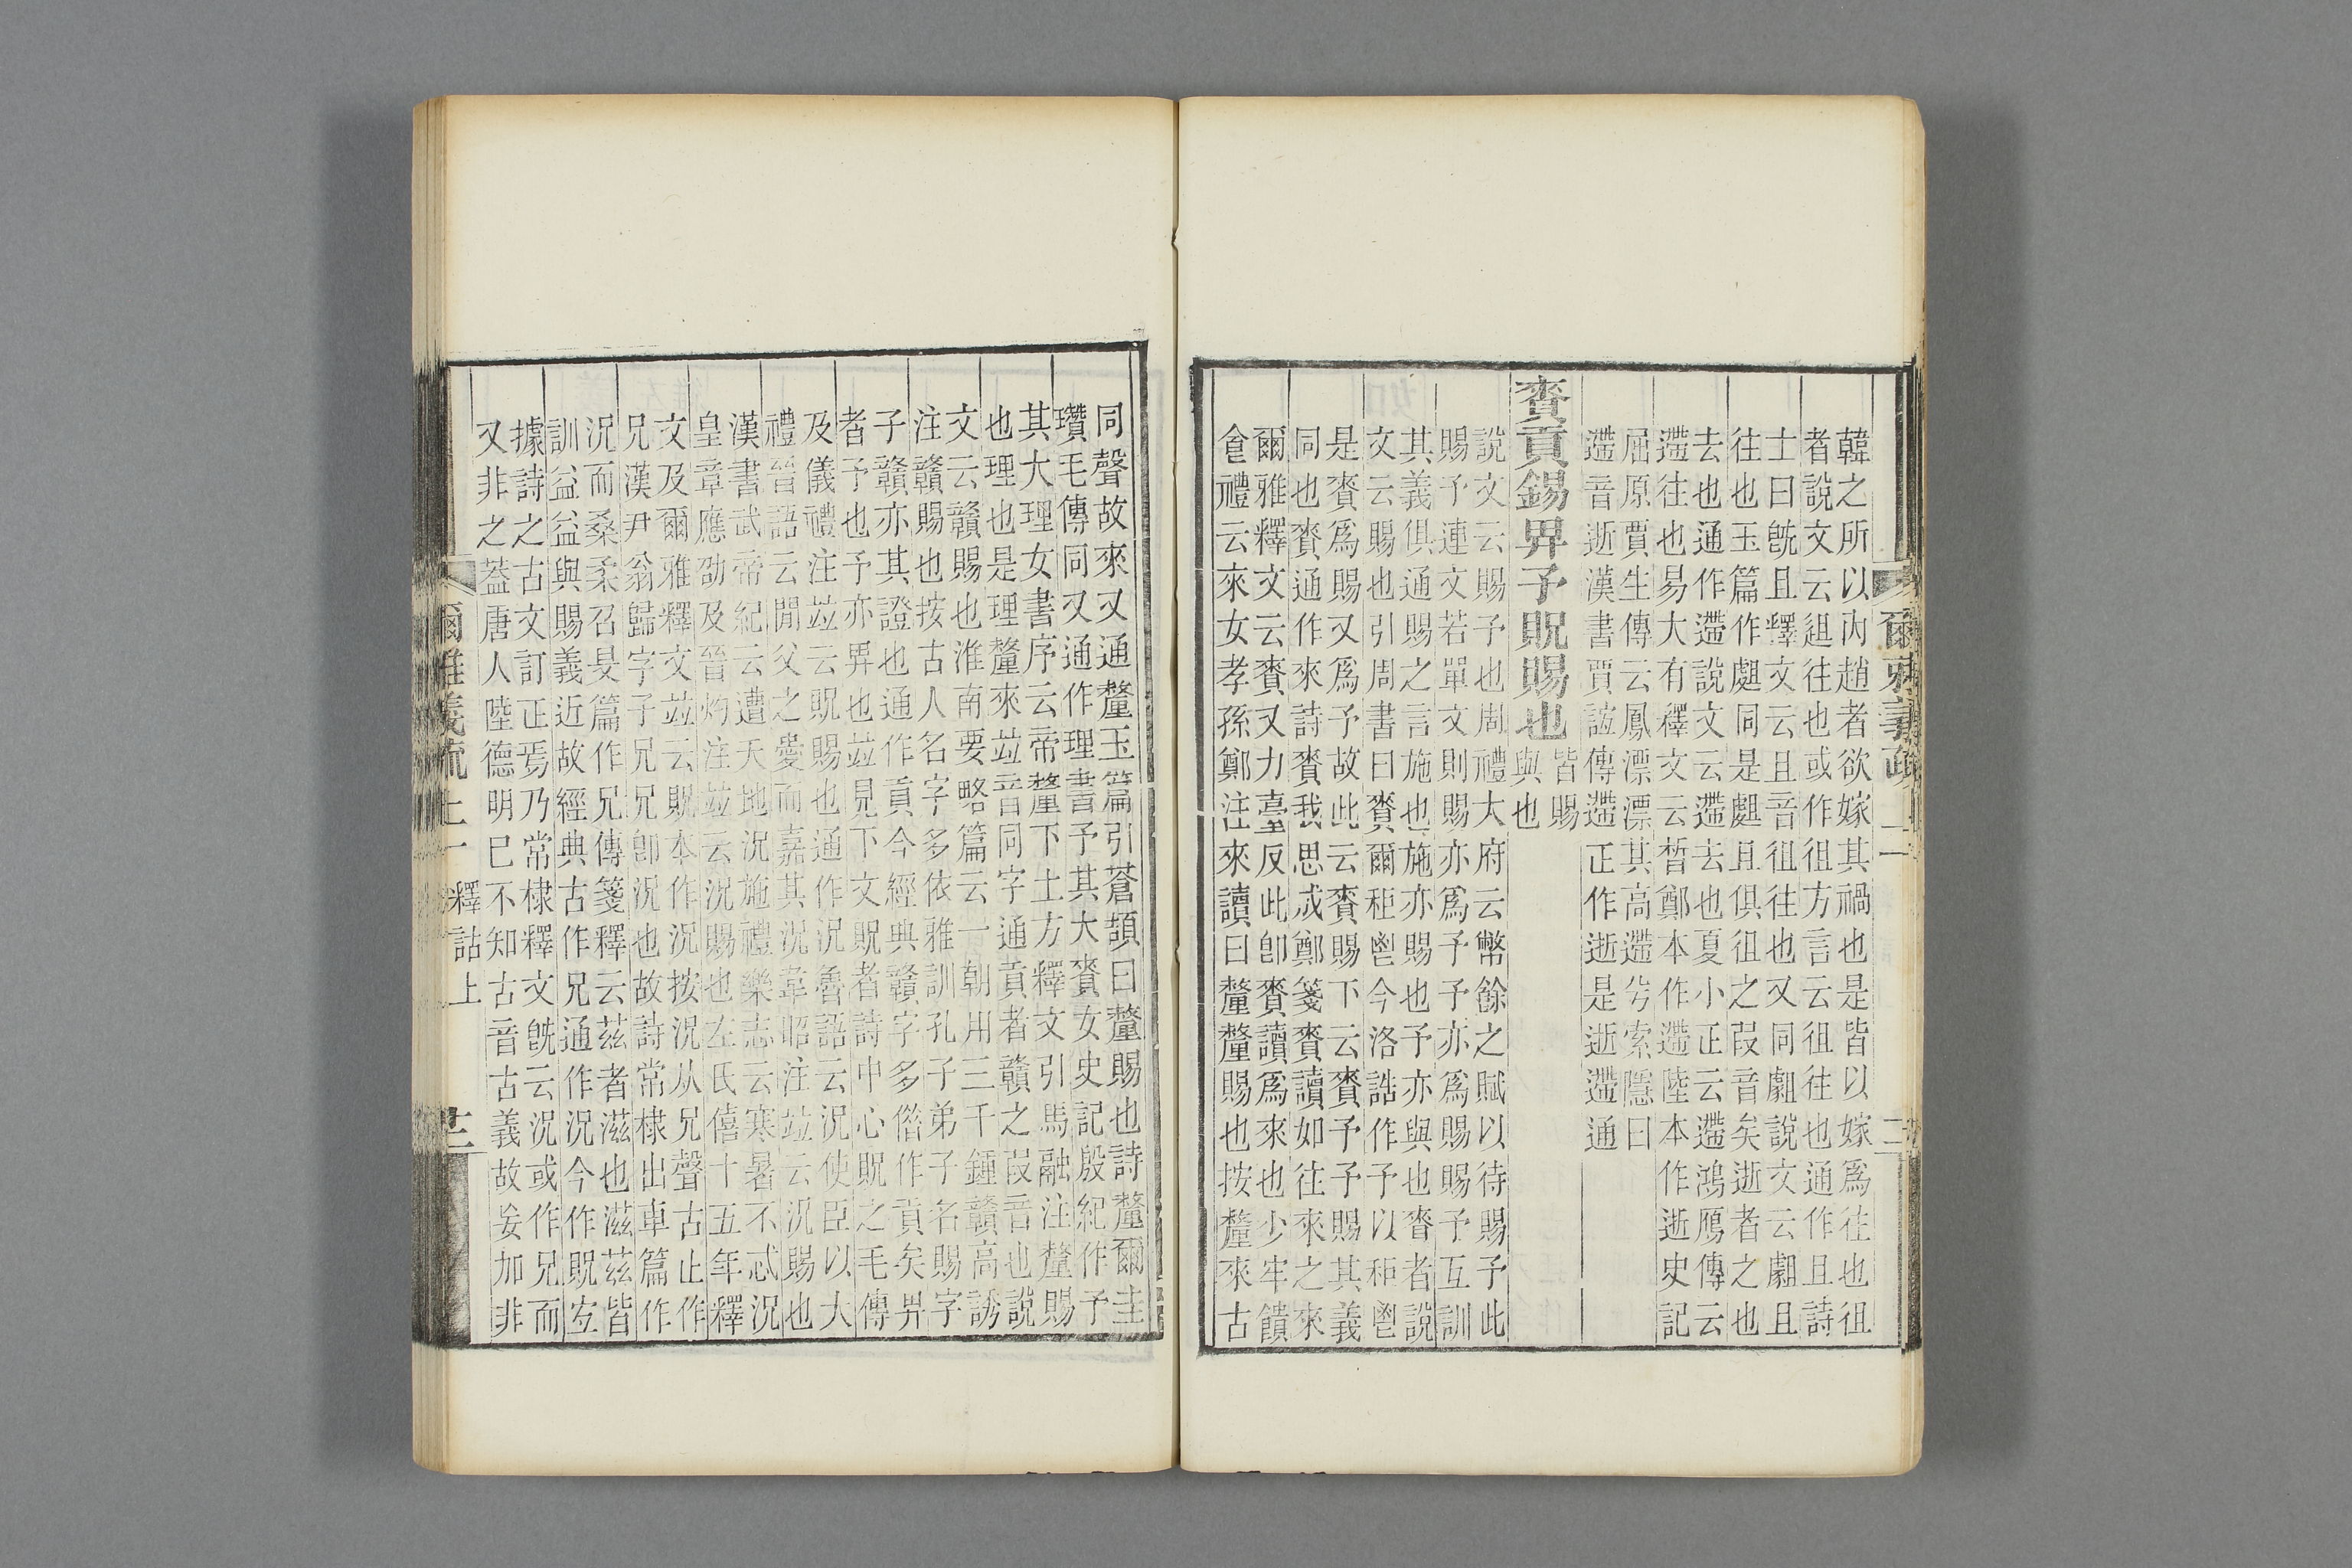 爾雅義疏
韓之所以內趙者欲嫁其禍也是皆以嫁爲往也徂
者說文云䢐往也或作徂方言云徂往也通作且詩
士曰旣且釋文云且音徂往也又同說文云且
往也玉篇作同是且俱徂之叚音矣逝者之也
去也通作遰說文云遰去也夏小正云遰鴻鴈傳云
遰往也易大有釋文云晢鄭本作遰陸本作逝史記
屈原賈生傳云鳳漂漂其高遰兮索隱曰
遰音逝漢書賈誼傳遰正作逝是逝遰通
賚貢錫畀予貺賜也皆賜與也
說文云賜予也周禮大府云幣餘之賦以待賜予此
賜予連文若單文則賜亦爲予予亦爲賜賜予互訓
其義俱通賜之言施也施亦賜也予亦與也賚者說
文云賜也引周書曰賚爾秬鬯今洛誥作予以秬鬯
是賚爲賜又爲予故此云賚賜下云賚予予賜其義
同也賚通作來詩賚我思成鄭箋賚讀如往來之來
爾雅釋文云賚又力臺反此卽賚讀爲來也少牢饋
食禮云來女孝孫鄭注來讀曰釐釐賜也按釐來古
同聲故來又通釐玉篇引蒼頡曰釐賜也詩釐爾圭
瓚毛傳同又通作理書予其大賚女史記殷紀作予
其大理女書序云帝釐下土方釋文引馬融注釐賜
也理也是理釐來竝音同字通貢者贛之叚音也說
文云贛賜也淮南要略篇云一朝用三千鍾贛高誘
注贛賜也按古人名字多依雅訓孔子弟子名賜字
子贛亦其證也通作貢今經典贛字多偕作貢矣畀
者予也予亦畀也竝見下文貺者詩中心貺之毛傳
及儀禮注竝云貺賜也通作況魯語云況使臣以大
禮晉語云閒父之愛而嘉其況韋昭注竝云況賜也
漢書武帝紀云遭天地況施禮樂志云寒暑不忒況
皇章應劭及晉灼注竝云況賜也左氏僖十五年釋
文及爾雅釋文竝云貺本作況按況从兄聲古止作
兄漢尹翁歸字子兄兄卽況也故詩常棣出車篇作
況而桑柔召旻篇作兄傳箋釋云茲者滋也滋茲皆
訓益益與賜義近故經典古作兄通作況今作貺左
據詩之古文訂正焉乃常棣釋文旣云況或作兄而
又非之葢唐人陸德明已不知古音古義故妄加非
爾雅義疏 上一 釋詁上